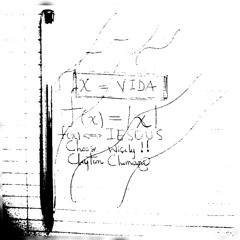 x = VIDA
f(x) = |x|
f(x) <=> IESOUS
Choose Wisely !!
Clayton